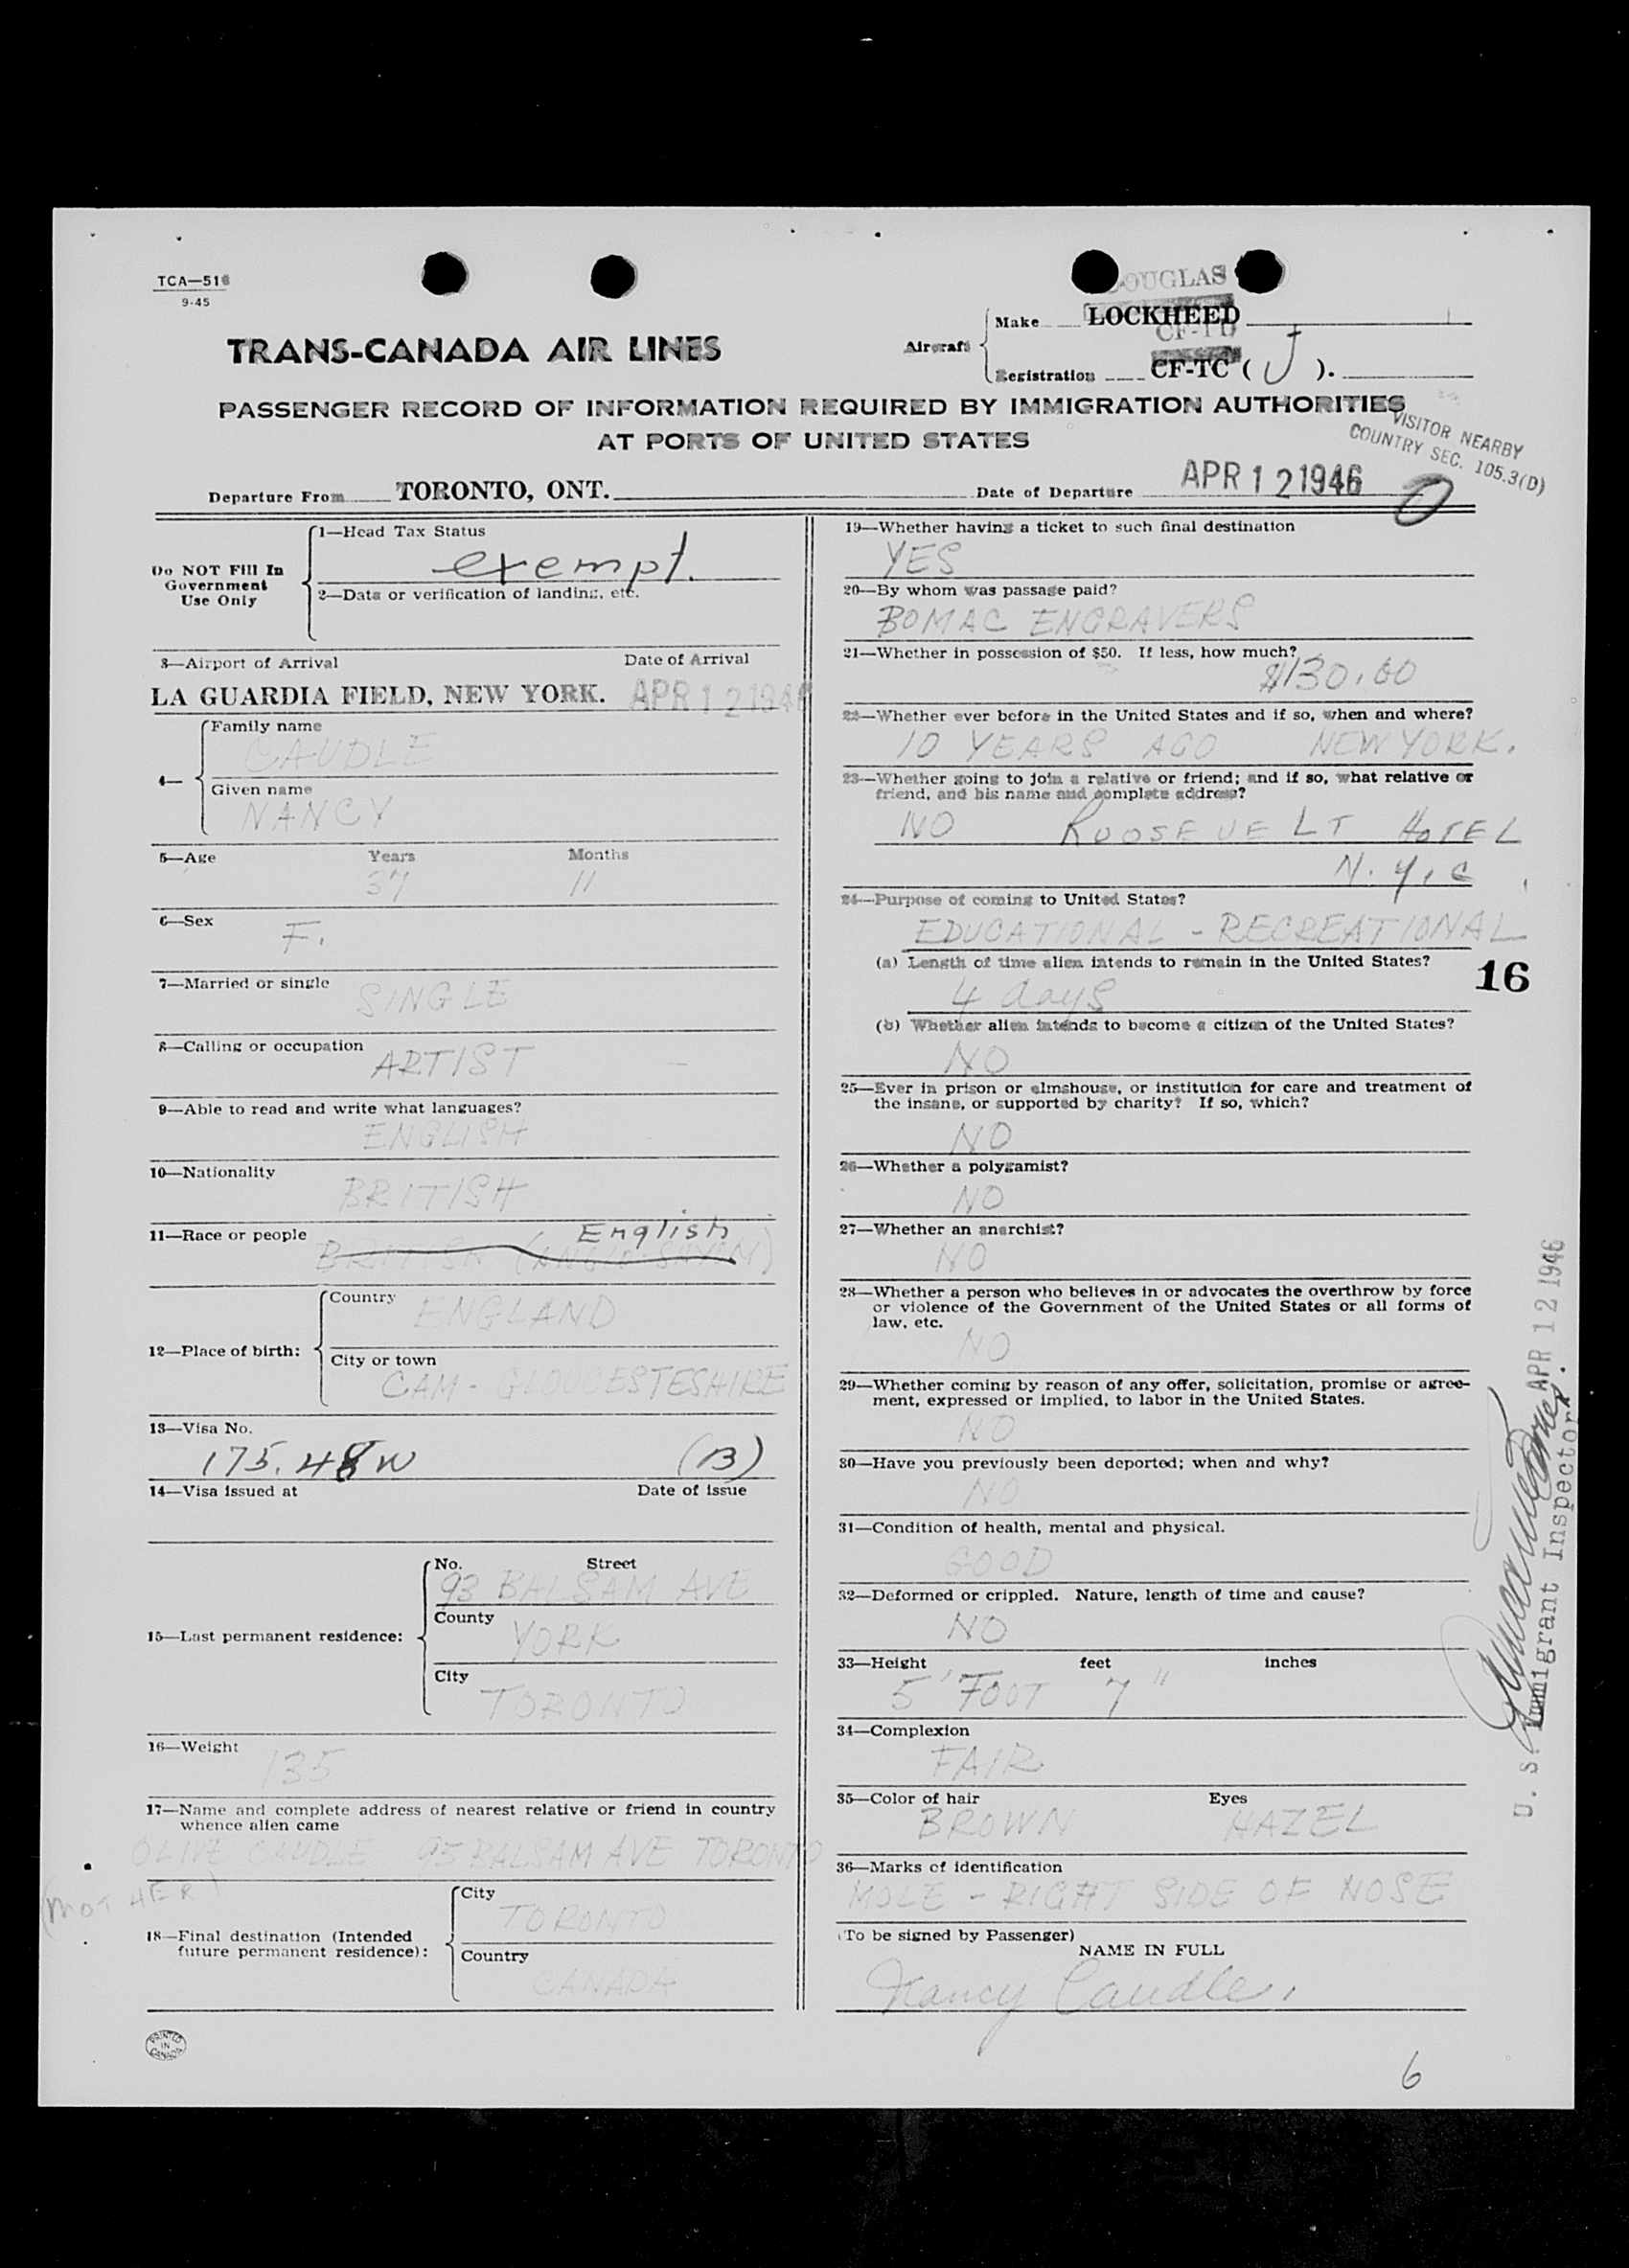 TCA—516
9-45
DOUGLAS
Aircraft
Make LOCKHEED
CF-TD
Registration CF-TC ( J ).
TRANS-CANADA AIR LINES
PASSENGER RECORD OF INFORMATION REQUIRED BY IMMIGRATION AUTHORITIES
AT PORTS OF UNITED STATES
VISITOR NEARBY
COUNTRY SEC. 105.3(D)
Departure From TORONTO, ONT. Date of Departure APR 12 1946
Do NOT Fill In
Government
Use Only
1—Head Tax Status
exempt.
2—Data or verification of landing, etc.
3—Airport of Arrival Date of Arrival
LA GUARDIA FIELD, NEW YORK. APR 12 1946
4—
Family name
CAUDLE
Given name
NANCY
5—Age Years Months
37 11
6—Sex
F.
7—Married or single
SINGLE
8—Calling or occupation
ARTIST
9—Able to read and write what languages?
ENGLISH
10—Nationality
BRITISH
11—Race or people English
BRITISH (ANGLO-SAXON)
12—Place of birth:
Country
ENGLAND
City or town
CAM - GLOUCESTESHIRE
13—Visa No.
175.48W (B)
14—Visa issued at Date of issue
15—Last permanent residence:
No. Street
93 BALSAM AVE
County
YORK
City
TORONTO
16—Weight
135
17—Name and complete address of nearest relative or friend in country
whence alien came
OLIVE CAUDLE 95 BALSAM AVE TORONTO
(MOTHER)
18—Final destination (Intended
future permanent residence):
City
TORONTO
Country
CANADA
PRINTED
IN
CANADA
19—Whether having a ticket to such final destination
YES
20—By whom was passage paid?
BOMAC ENGRAVERS
21—Whether in possession of $50. If less, how much?
$130.00
22—Whether ever before in the United States and if so, when and where?
10 YEARS AGO NEW YORK.
23—Whether going to join a relative or friend; and if so, what relative or
friend, and his name and complete address?
NO ROOSEVELT HOTEL
N.Y.C
24—Purpose of coming to United States?
EDUCATIONAL - RECREATIONAL
(a) Length of time alien intends to remain in the United States?
4 days
16
(b) Whether alien intends to become a citizen of the United States?
NO
25—Ever in prison or almshouse, or institution for care and treatment of
the insane, or supported by charity? If so, which?
NO
26—Whether a polygamist?
NO
27—Whether an anarchist?
NO
28—Whether a person who believes in or advocates the overthrow by force
or violence of the Government of the United States or all forms of
law, etc.
NO
29—Whether coming by reason of any offer, solicitation, promise or agree-
ment, expressed or implied, to labor in the United States.
NO
30—Have you previously been deported; when and why?
NO
31—Condition of health, mental and physical.
GOOD
32—Deformed or crippled. Nature, length of time and cause?
NO
33—Height feet inches
5' FOOT 7"
34—Complexion
FAIR
35—Color of hair Eyes
BROWN HAZEL
36—Marks of identification
MOLE - RIGHT SIDE OF NOSE
(To be signed by Passenger)
NAME IN FULL
Nancy Caudle.
6
APR 12 1946
U. S. Immigrant Inspector.